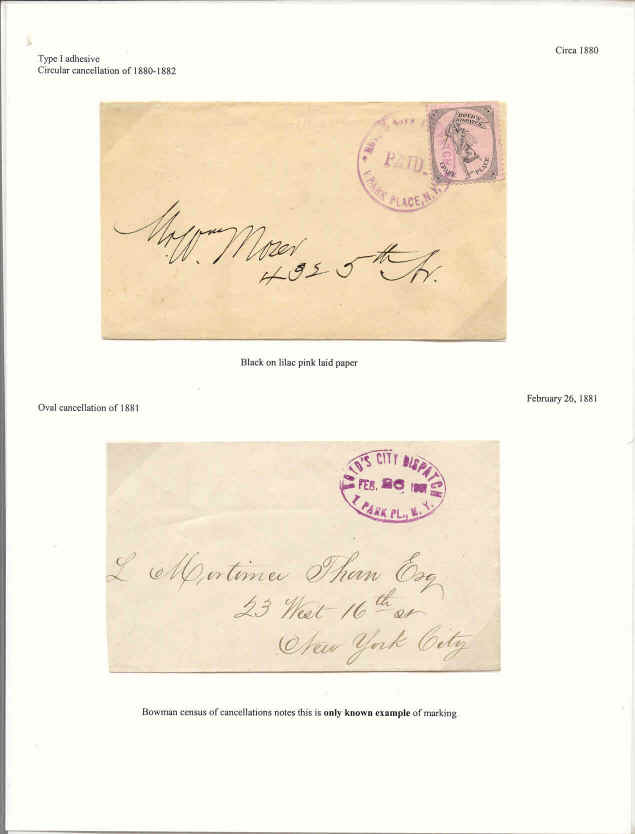 Circa 1880
Type I adhesive
Circular cancellation of 1880-1882
PAID.
1 PARK PLACE, N.Y.
BOYD'S
DISPATCH
1 PARK PLACE
Moser
432 5th Av.
Black on lilac pink laid paper
February 26, 1881
Oval cancellation of 1881
BOYD'S CITY DISPATCH
FEB. 26 1881
1 PARK PL., N. Y.
L Mortimer Thorn Esq
23 West 16th st
New York City
Bowman census of cancellations notes this is only known example of marking